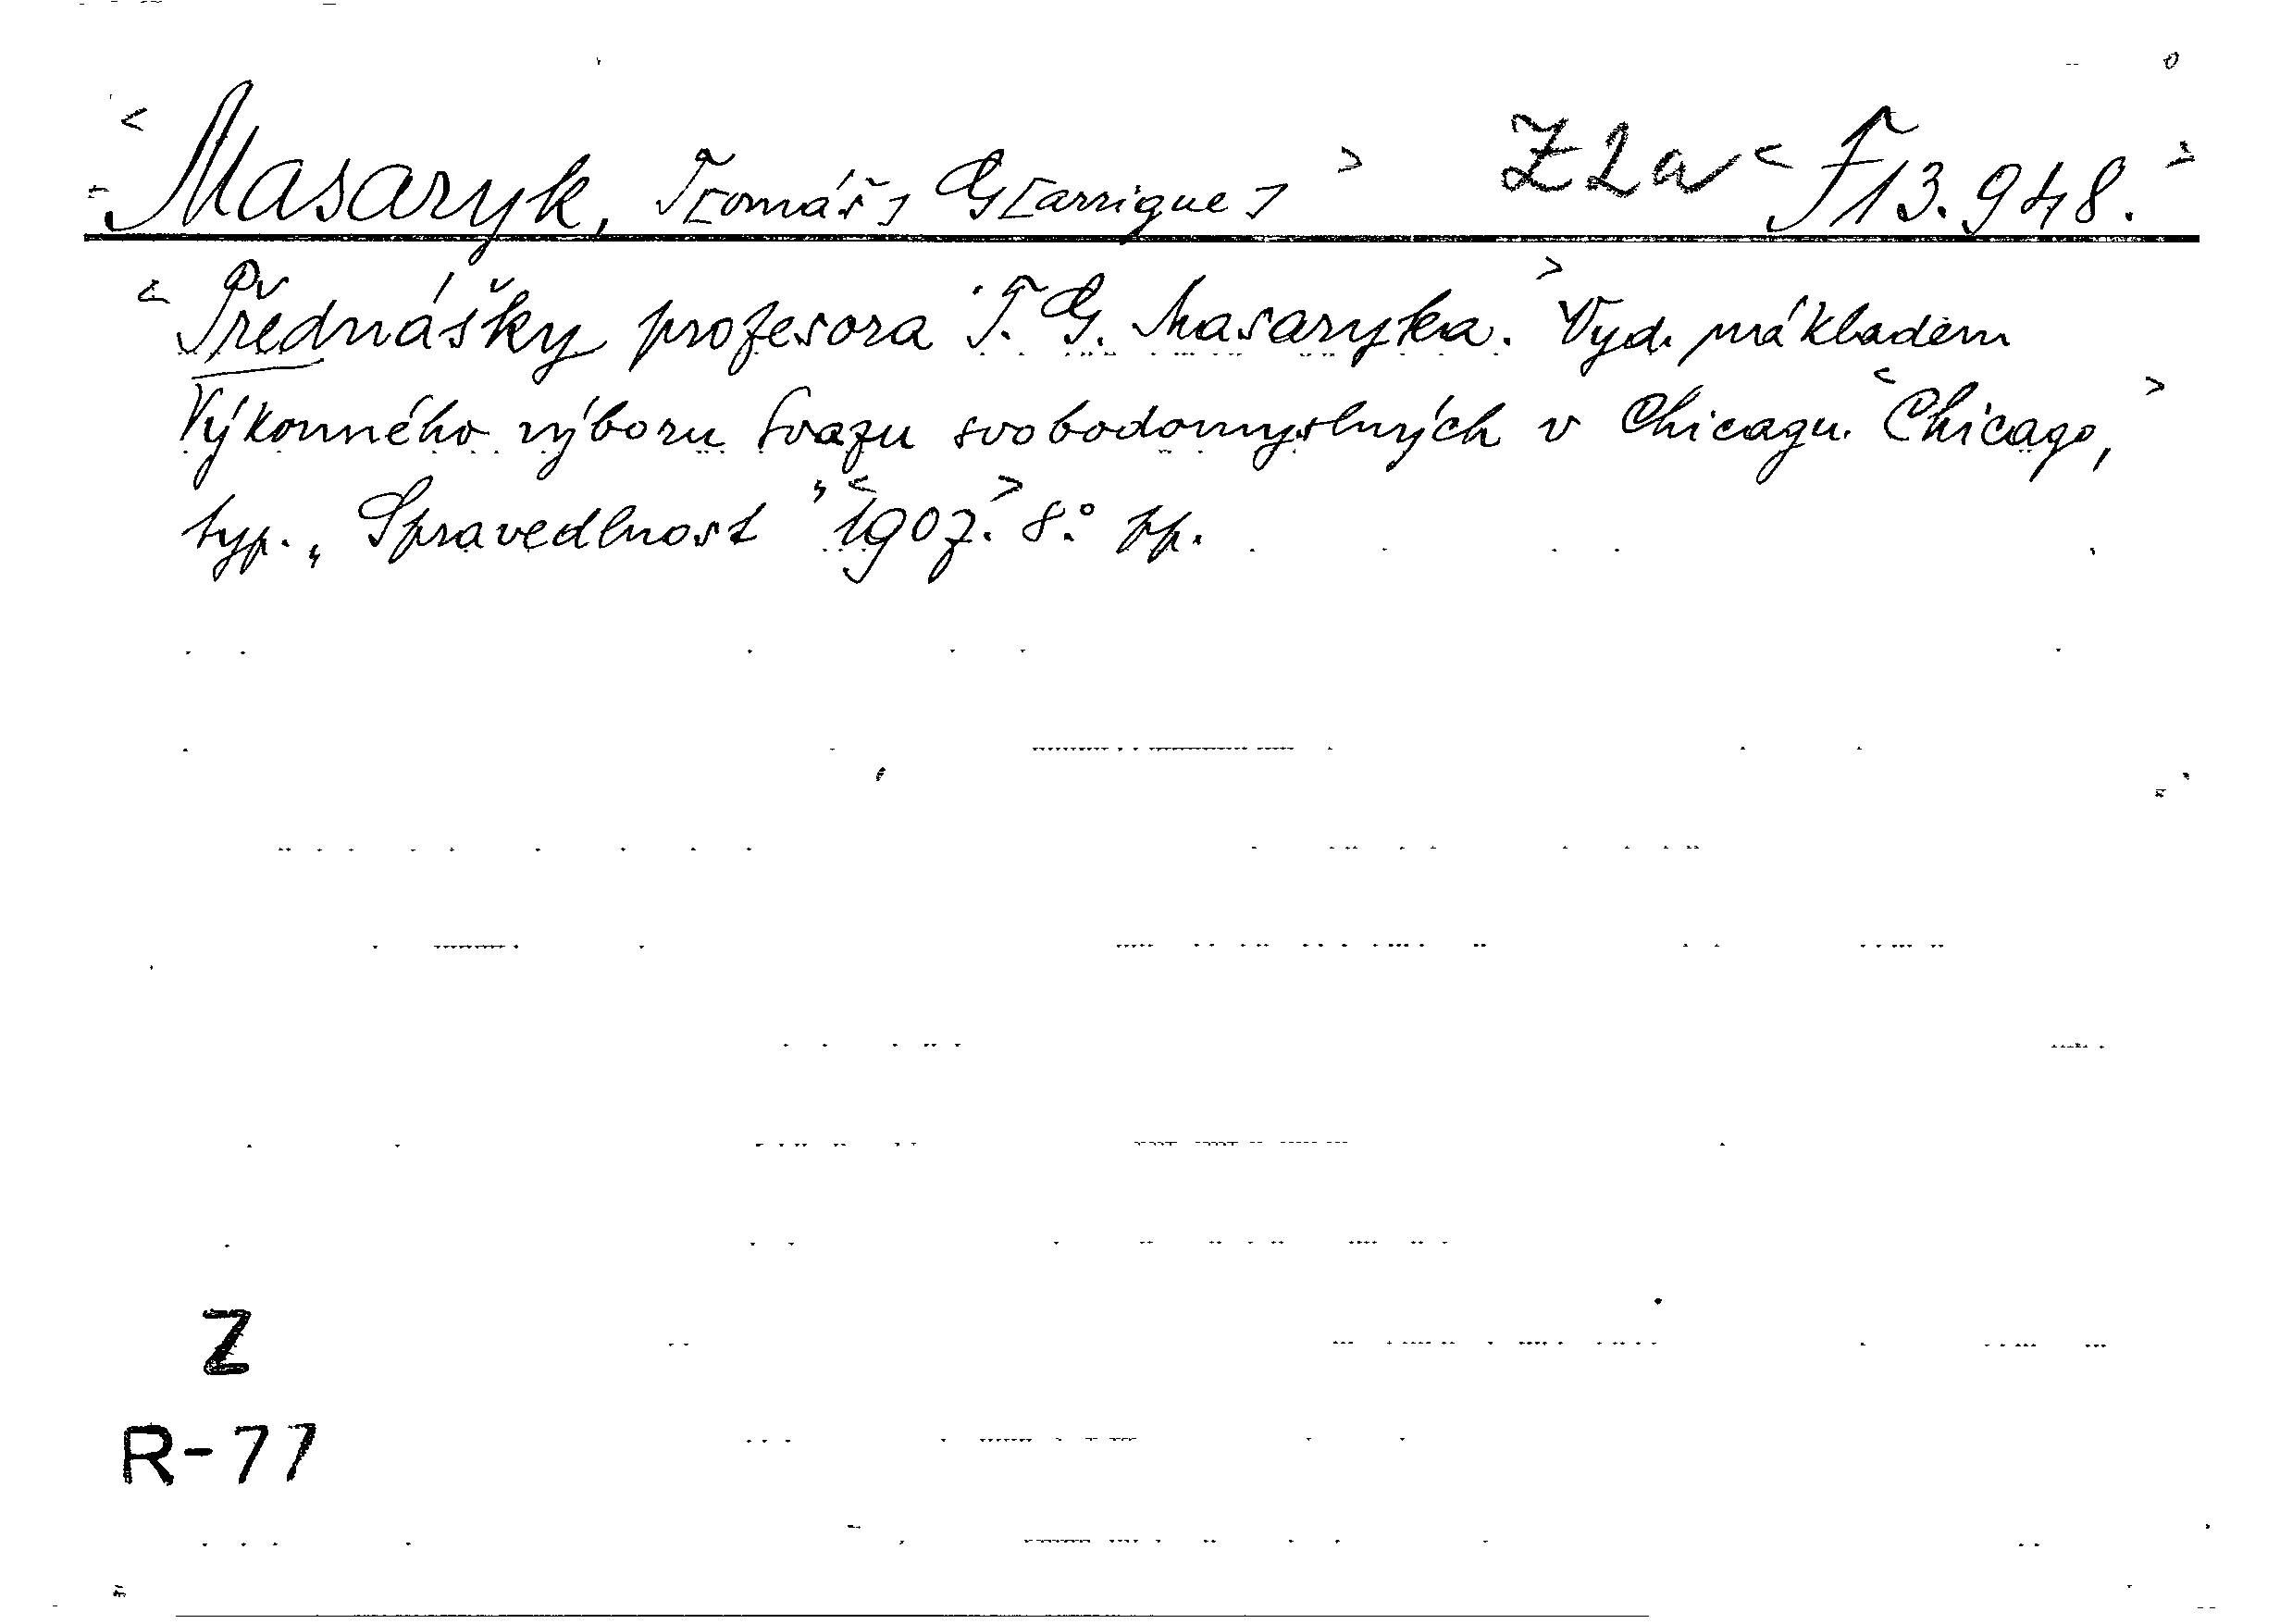 < Masaryk, T[omáš] G[arrigue] > Z La < F 13.948. >
< Přednášky profesora T. G. Masaryka. > Vyd. nákladem
Výkonného výboru Svazu svobodomyslných v Chicagu. < Chicago, >
typ. „Spravedlnost" < 1907. > 8.° pp.
Z
R-77